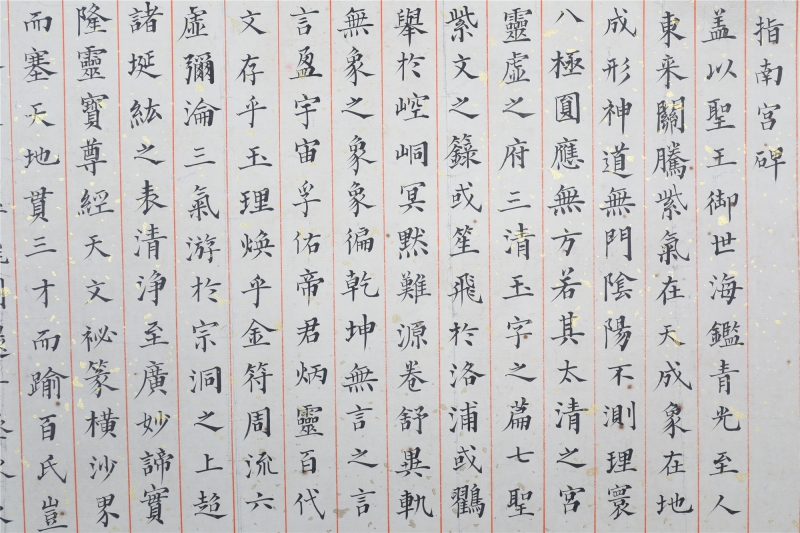 指南宮碑
蓋以聖王御世海鑑青光至人
東来關騰紫氣在天成象在地
成形神道無門陰陽不測理寰
八極圓應無方若其太清之宮
靈虛之府三清玉字之篇七聖
紫文之籙或笙飛於洛浦或鸐
舉於崆峒冥默難源卷舒異軌
無象之象象徧乾坤無言之言
言盈宇宙孚佑帝君炳靈百代
文存乎玉理煥乎金符周流六
虛彌淪三氣游於宗洞之上超
諸埏紘之表清淨至廣妙諦實
隆靈寶尊經天文祕篆橫沙界
而塞天地貫三才而踰百氏豈